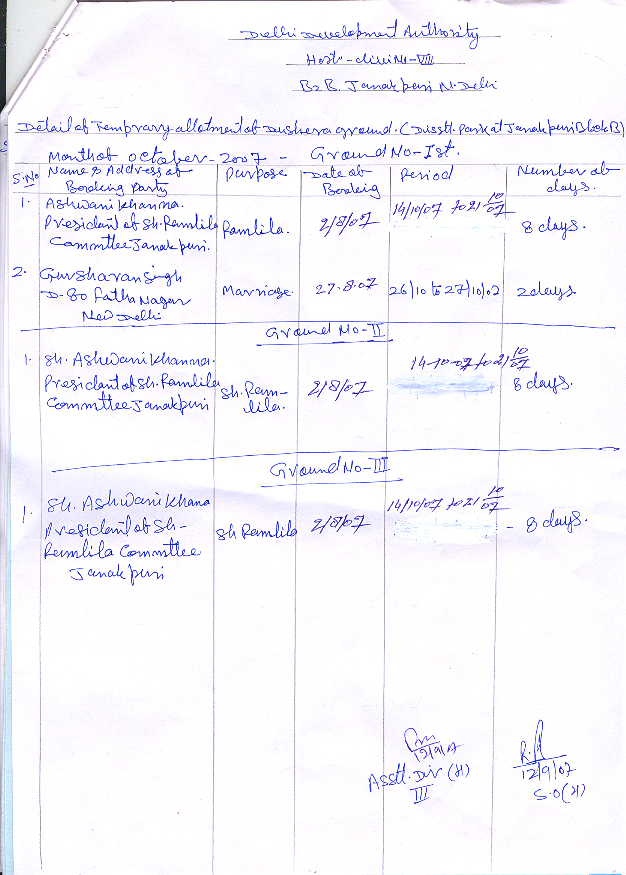 Delhi Development Authority
Hort-divi No-VIII
B2B. Janakpuri N. Delhi
Detail of Temprary allotment of Dushera ground. (Disstt. Park at Janakpuri Block B)
Month of October-2007 - Ground No-Ist.
S.No Name & Address of Booking Party Purpose Date of Booking Period Number of days.
1. Ashwani Khanna. President of Sh. Ramlila Committee Janakpuri. Ramlila. 2/8/07 14/10/07 to 21/10/07 8 days.
2. Gursharan Singh D-80 Fathe Nagar New Delhi Marriage. 27.8.07 26/10 to 27/10/07 2 days
Ground No-II
1. Sh. Ashwani Khanna. President of Sh. Ramlila Committee Janakpuri Sh. Ram-lila. 2/8/07 14-10-07 to 21/10/07 8 days.
Ground No-III
1. Sh. Ashwani Khana President of Sh- Ramlila Committee Janakpuri Sh Ramlila 2/8/07 14/10/07 to 21/10/07 - 8 days.
12/9/07
12/9/07
Asstt. Dir (H) III
S.O (H)